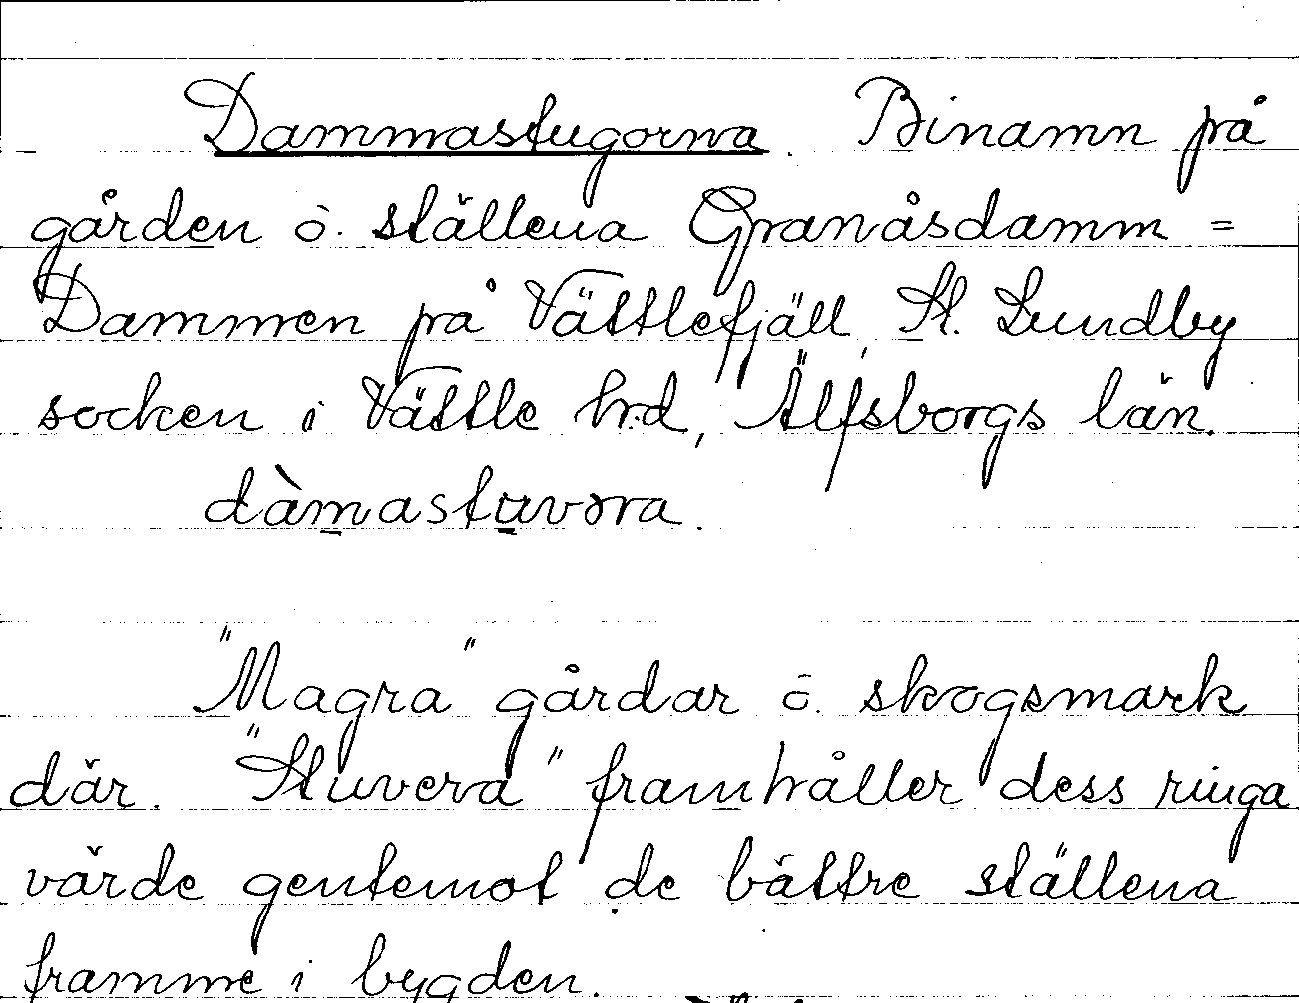 Dammastugorna. Binamn på
gården o. ställena Granåsdamm =
Dammen på Vättlefjäll, St. Lundby
socken i Vättle hrd, Älfsborgs län.
dàmastuvora.
"Magra" gårdar o. skogsmark
där. "Stuvera" framhåller dess ringa
värde gentemot de bättre ställena
framme i bygden.